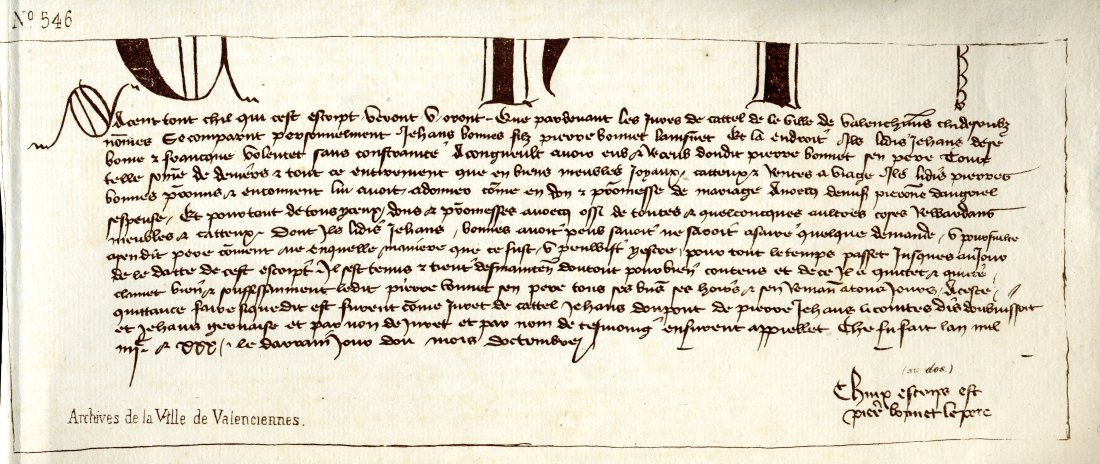 No 546
Sacent tout chil qui cest escript veront u oront Que par devant les jures de cattel de le ville de Valenchiennes chi desoubz
nommes Se comparut personnelment Jehans bonnes filz pierre bonnet Et la endroit Ils lidis Jehans de se
bonne & francque volentet sans constrainte Acongneult avoir eus & recus doudit pierre bonnet sen pere Toute
telle somme de deniers & tout ce entirement que en biens meubles joyaux catteux & rentes a viage Ils lidis pierres
bonnes promis & encouvent lui avoit a donner comme en don & promesse de mariage Avoecq
sespeuse Et pour tant de tous yceux dons & promesses avoecq ossi de toutes & quelconcques aultres coses Rewardans
meubles & catteux dont Ils lidis Jehans bonnes avoit peut savoit ne savoir quelque demande u poursuite
a sen dit pere comment ne en quelle maniere que ce fust u peuwist yestre pour tout le temps passet Jusques au jour
de le datte de cest escript Il sest tenus & tient des maintenant dou tout pour bien contens et de ce Il a quittet & quitte
clamet bien & souffissamment ledit pierre bonnet sen pere tous ses biens ses hoirs & sen Remanant a tous jours A ceste
quittance faire si que dit est furent comme Juret de cattel Jehans doupont de pierre Jehans li contes dis
et Jehans gervaise et par non de Juret et par nom de tesmoing en furent appiellet Che fu fait lan mil
iiijc & xxx le darrain jour dou mois doctembre
(au dos.)
Chuip escrips est
pier bonnet le pere
Archives de la Ville de Valenciennes.